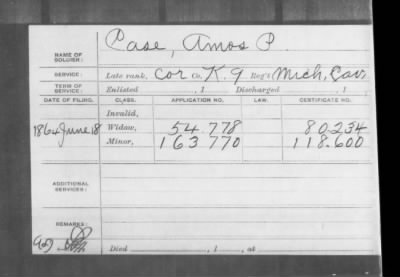 Case, Amos P.
NAME OF SOLDIER:
SERVICE: Late rank, Cor Co. K, 9 Reg't Mich, Cav
TERM OF SERVICE: Enlisted , 1 Discharged , 1
DATE OF FILING. CLASS. APPLICATION NO. LAW. CERTIFICATE NO.
Invalid,
1864 June 18 Widow, 54.778 80.234
Minor, 163770 118.600
ADDITIONAL SERVICES:
REMARKS:
Died , 1 , at